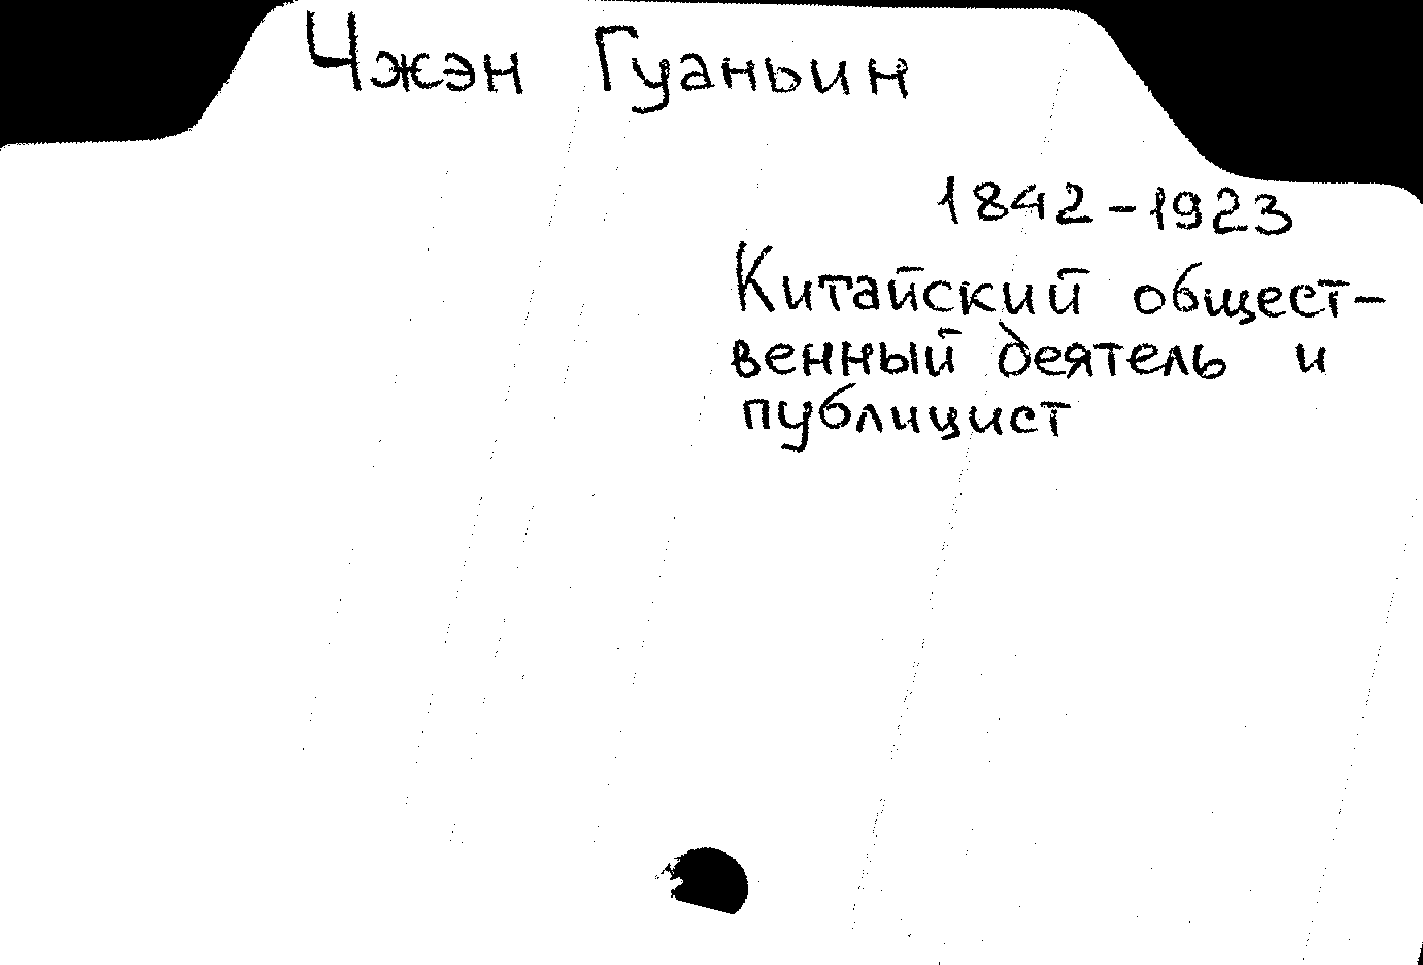 Чжэн Гуаньин
1842-1923
Китайский общест-
венный деятель и
публицист